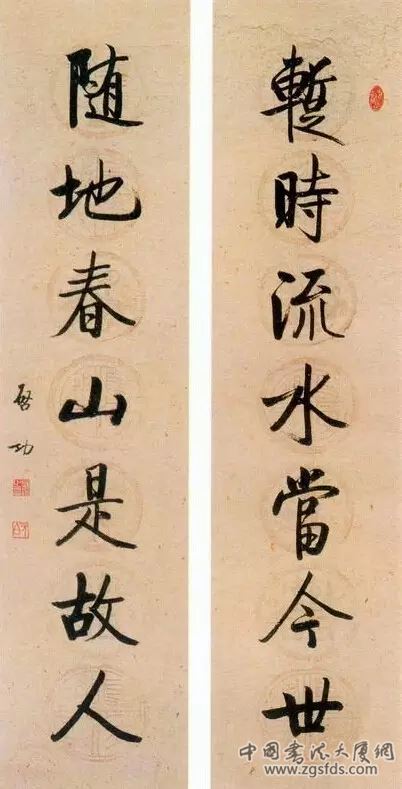 暫時流水當今世
随地春山是故人
啓功
中國書法大厦網
www.zgsfds.com